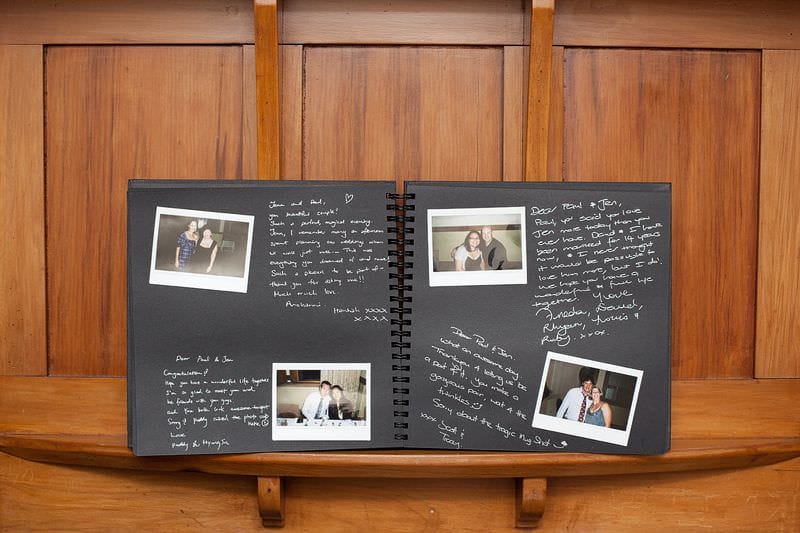 Jenn and Paul,
you beautiful couple!
Such a perfect, magical evening.
Jenn, I remember many an afternoon
spent planning our weddings when
we were just girls... This was
everything you dreamed of and more.
Such a pleasure to be part of -
thank you for asking me!!
Much much love.
Hamish xxxx
xxxxx
Dear Paul & Jen
Congratulations!
Hope you have a wonderful life together
I'm so glad to meet you and
be friends with you guys.
and you both look awesome tonight
Sorry if Paddy ruined the photo with
Love
Paddy & HyangSu
Dear Paul & Jen,
Paul, you said you love
Jen more today than you
ever have. David & I have
been married for 14 years
now, & I never thought
it would be possible to
love him more, but I do.
We hope you have a
wonderful & full life
together. Love
David,
Rhyan, Louis &
Ruby. xxox.
Dear Paul & Jen.
What an awesome day.
Thankyou 4 letting us be
a part of it. You make a
gorgeous pair, wot 4 the
twinkles
Sorry about the tragic mug shot
xxxx Scott &
Tracy.